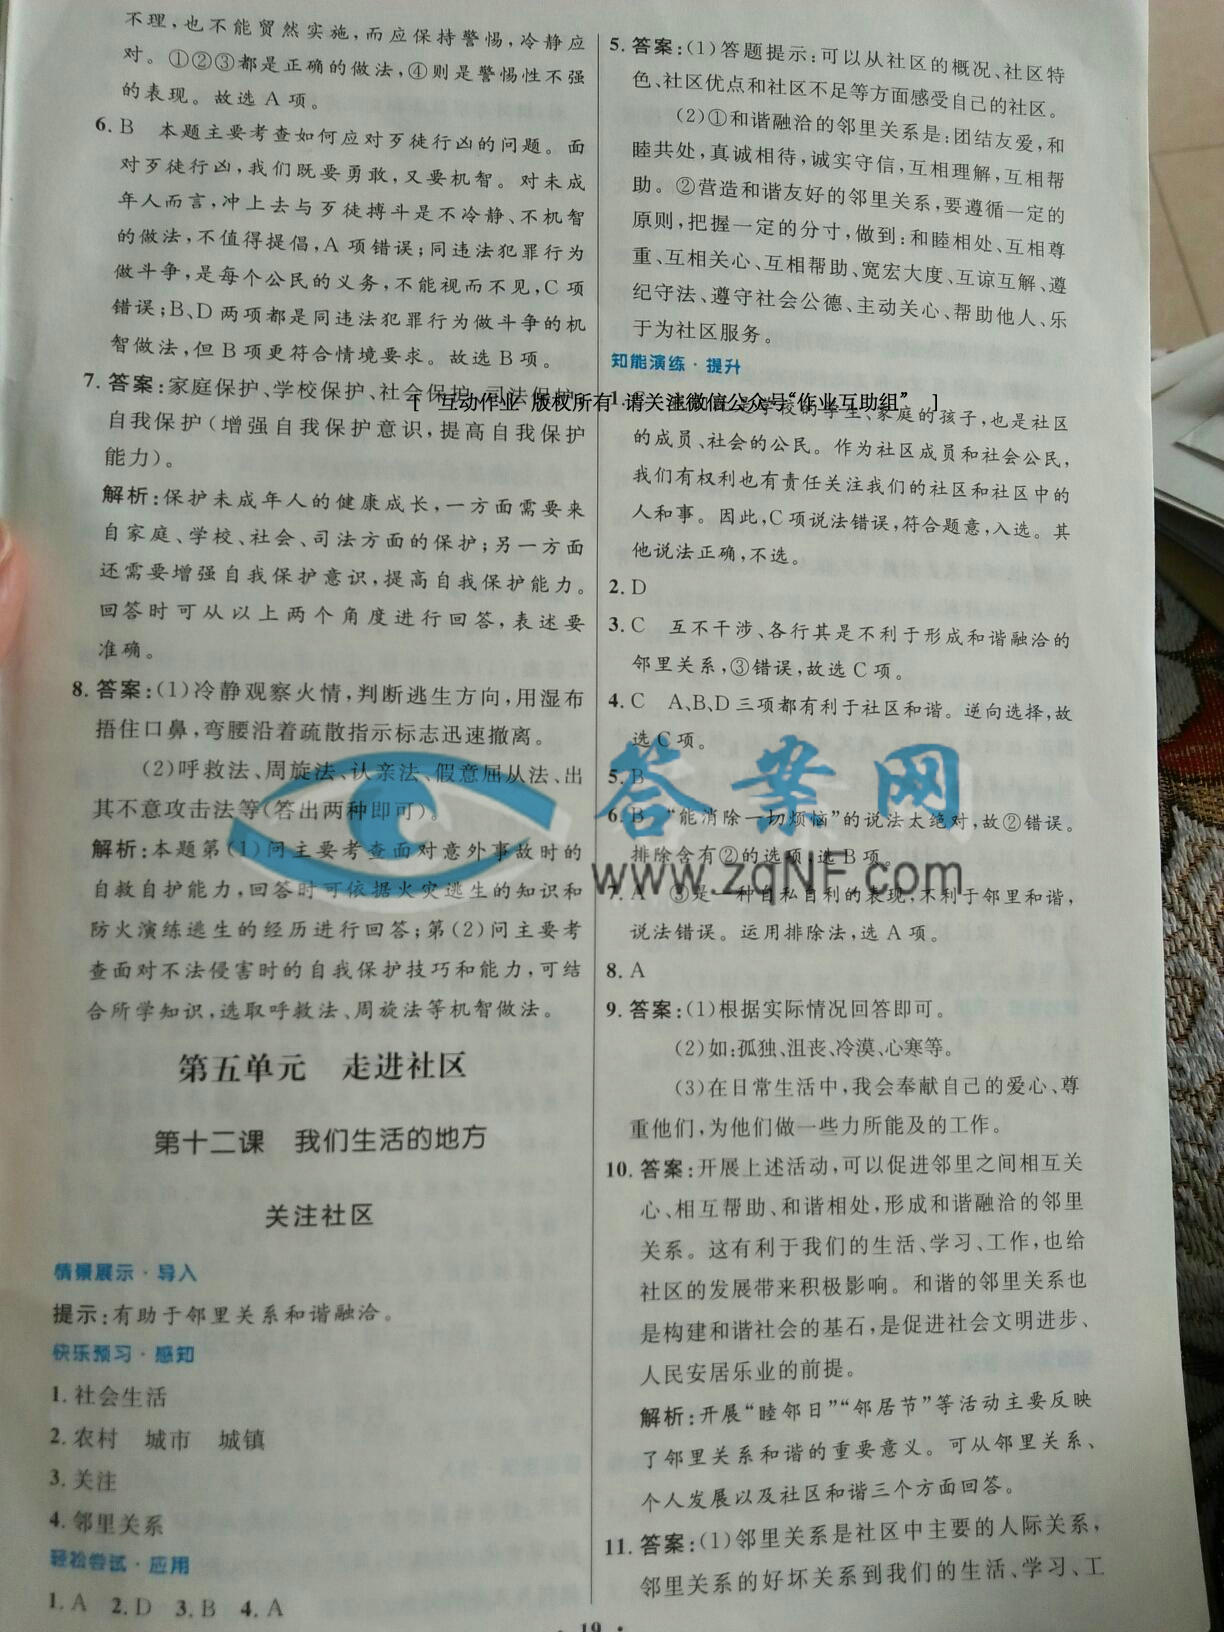 不理,也不能贸然实施,而应保持警惕,冷静应
对。①②③都是正确的做法,④则是警惕性不强
的表现。故选A项。
6. B 本题主要考查如何应对歹徒行凶的问题。面
对歹徒行凶,我们既要勇敢,又要机智。对未成
年人而言,冲上去与歹徒搏斗是不冷静、不机智
的做法,不值得提倡,A项错误;同违法犯罪行为
做斗争,是每个公民的义务,不能视而不见,C项
错误;B、D两项都是同违法犯罪行为做斗争的机
智做法,但B项更符合情境要求。故选B项。
7. 答案:家庭保护、学校保护、社会保护、司法保护、
自我保护(增强自我保护意识,提高自我保护
能力)。
解析:保护未成年人的健康成长,一方面需要来
自家庭、学校、社会、司法方面的保护;另一方面
还需要增强自我保护意识,提高自我保护能力。
回答时可从以上两个角度进行回答,表述要
准确。
8. 答案:(1)冷静观察火情,判断逃生方向,用湿布
捂住口鼻,弯腰沿着疏散指示标志迅速撤离。
(2)呼救法、周旋法、认亲法、假意屈从法、出
其不意攻击法等(答出两种即可)。
解析:本题第(1)问主要考查面对意外事故时的
自救自护能力,回答时可依据火灾逃生的知识和
防火演练逃生的经历进行回答;第(2)问主要考
查面对不法侵害时的自我保护技巧和能力,可结
合所学知识,选取呼救法、周旋法等机智做法。
第五单元 走进社区
第十二课 我们生活的地方
关注社区
情景展示·导入
提示:有助于邻里关系和谐融洽。
快乐预习·感知
1. 社会生活
2. 农村 城市 城镇
3. 关注
4. 邻里关系
轻松尝试·应用
1. A 2. D 3. B 4. A
5. 答案:(1)答题提示:可以从社区的概况、社区特
色、社区优点和社区不足等方面感受自己的社区。
(2)①和谐融洽的邻里关系是:团结友爱,和
睦共处,真诚相待,诚实守信,互相理解,互相帮
助。②营造和谐友好的邻里关系,要遵循一定的
原则,把握一定的分寸,做到:和睦相处、互相尊
重、互相关心、互相帮助、宽宏大度、互谅互解、遵
纪守法、遵守社会公德、主动关心、帮助他人、乐
于为社区服务。
知能演练·提升
[ 互动作业 版权所有 请关注微信公众号“作业互助组” ]
1. 学校的学生、家庭的孩子,也是社区
的成员、社会的公民。作为社区成员和社会公民,
我们有权利也有责任关注我们的社区和社区中的
人和事。因此,C项说法错误,符合题意,入选。其
他说法正确,不选。
2. D
3. C 互不干涉、各行其是不利于形成和谐融洽的
邻里关系,③错误,故选C项。
4. C A、B、D三项都有利于社区和谐。逆向选择,故
选C项。
答案网
5. B
6. B “能消除一切烦恼”的说法太绝对,故②错误。
排除含有②的选项,选B项。
www.zqNF.com
7. A ③是一种自私自利的表现,不利于邻里和谐,
说法错误。运用排除法,选A项。
8. A
9. 答案:(1)根据实际情况回答即可。
(2)如:孤独、沮丧、冷漠、心寒等。
(3)在日常生活中,我会奉献自己的爱心、尊
重他们,为他们做一些力所能及的工作。
10. 答案:开展上述活动,可以促进邻里之间相互关
心、相互帮助、和谐相处,形成和谐融洽的邻里
关系。这有利于我们的生活、学习、工作,也给
社区的发展带来积极影响。和谐的邻里关系也
是构建和谐社会的基石,是促进社会文明进步、
人民安居乐业的前提。
解析:开展“睦邻日”“邻居节”等活动主要反映
了邻里关系和谐的重要意义。可从邻里关系、
个人发展以及社区和谐三个方面回答。
11. 答案:(1)邻里关系是社区中主要的人际关系,
邻里关系的好坏关系到我们的生活、学习、工
19